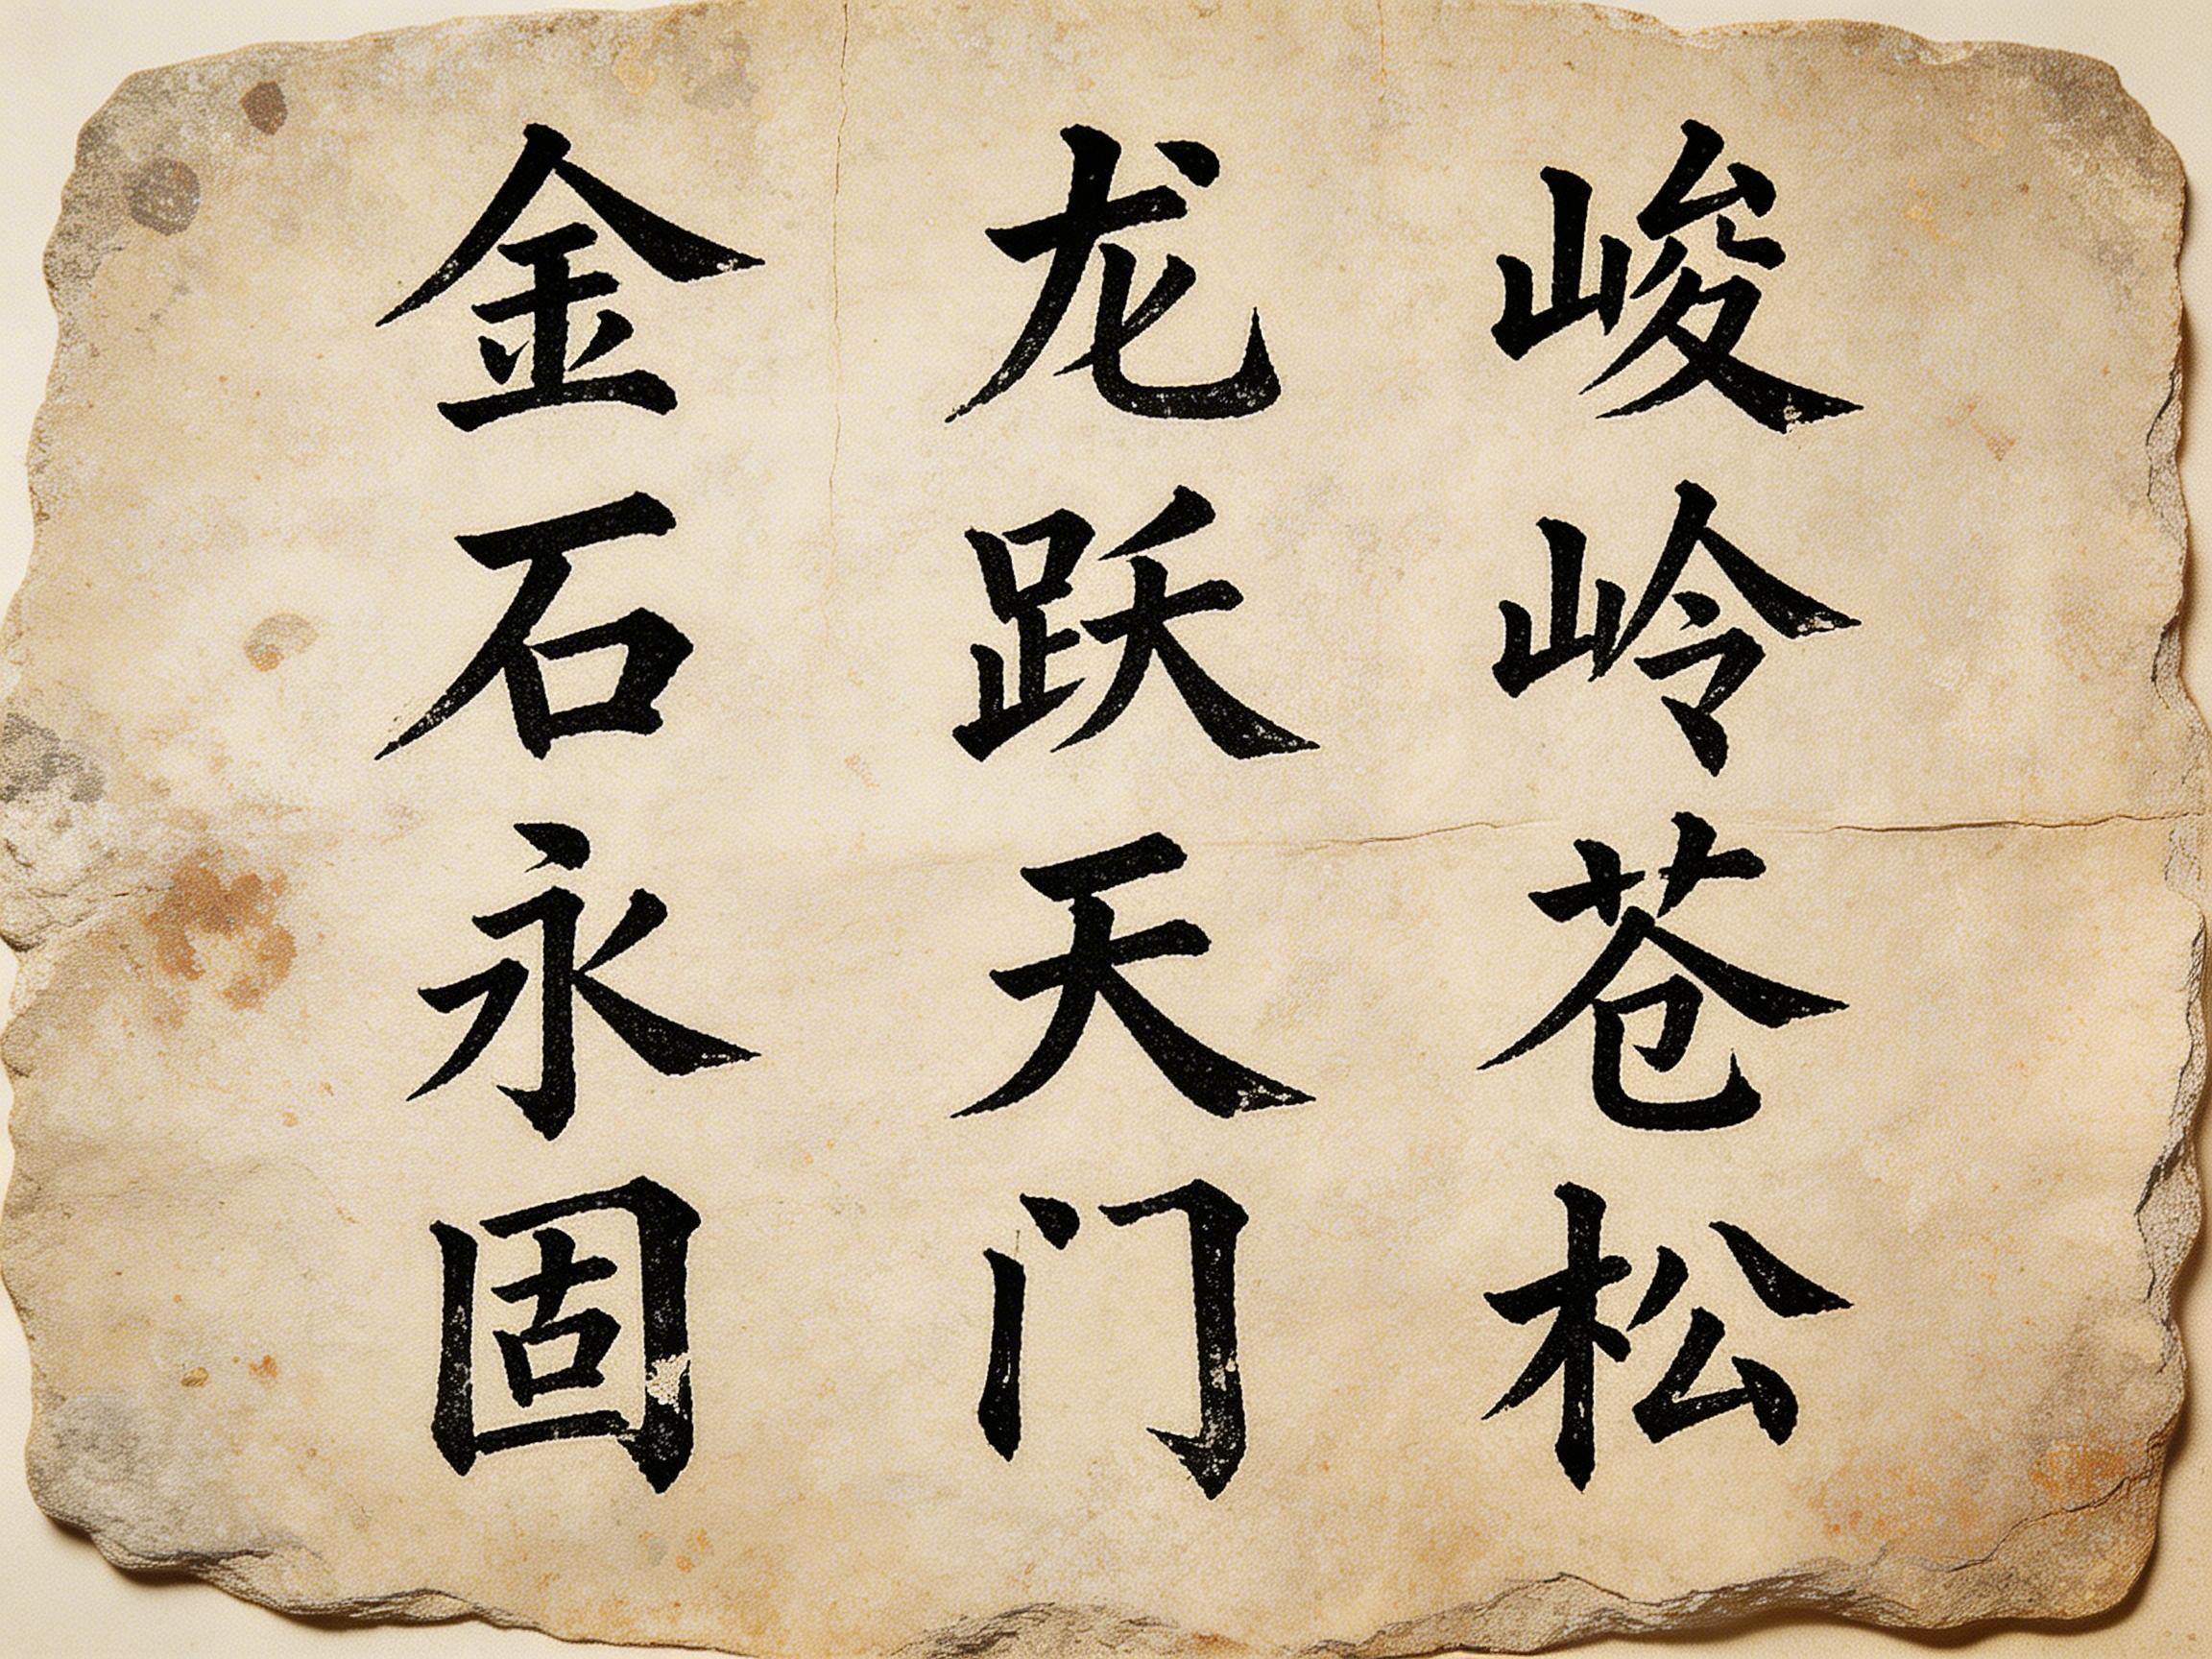 峻岭苍松
龙跃天门
金石永固